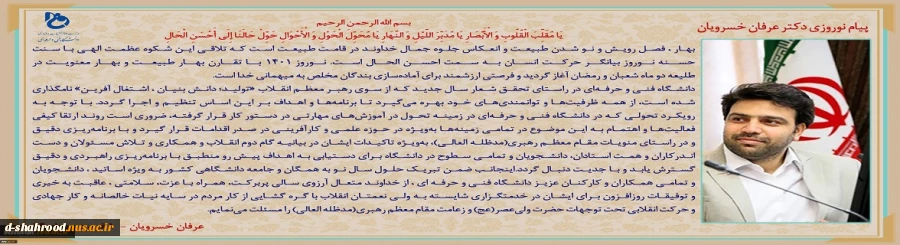 پیام نوروزی دکتر عرفان خسرویان
بسم الله الرحمن الرحیم
یَا مُقَلِّبَ الْقُلُوبِ وَ الْأَبْصَارِ یَا مُدَبِّرَ اللَّیْلِ وَ النَّهَارِ یَا مُحَوِّلَ الْحَوْلِ وَ الْأَحْوَالِ حَوِّلْ حَالَنَا إِلَی أَحْسَنِ الْحَالِ
بهار ، فصل رویش و نو شدن طبیعت و انعکاس جلوه جمال خداوند در قامت طبیعت است که تلاقی این شکوه عظمت الهی با سنت
حسنه نوروز بیانگر حرکت انسان به سمت احسن الحال است. نوروز ۱۴۰۱ با تقارن بهار طبیعت و بهار معنویت در
طلیعه دو ماه شعبان و رمضان آغاز گردید و فرصتی ارزشمند برای آماده‌سازی بندگان مخلص به میهمانی خدا است.
دانشگاه فنی و حرفه‌ای در راستای تحقق شعار سال جدید که از سوی رهبر معظم انقلاب «تولید؛ دانش بنیان ، اشتغال آفرین» نامگذاری
شده است، از همه ظرفیت‌ها و توانمندی‌های خود بهره می‌گیرد تا برنامه‌ها و اهداف بر این اساس تنظیم و اجرا گردد. با توجه به
رویکرد تحولی که در دانشگاه فنی و حرفه‌ای در زمینه تحول در آموزش‌های مهارتی در دستور کار قرار گرفته، ضروری است روند ارتقا کیفی
فعالیت‌ها و اهتمام به این موضوع در تمامی زمینه‌ها به‌ویژه در حوزه علمی و کارآفرینی در صدر اقدامات قرار گیرد و با برنامه‌ریزی دقیق
و در راستای منویات مقام معظم رهبری(مدظله العالی)، به‌ویژه تاکیدات ایشان در بیانیه گام دوم انقلاب و همکاری و تلاش مسئولان و دست
اندرکاران و همت استادان، دانشجویان و تمامی سطوح در دانشگاه برای دستیابی به اهداف پیش رو منطبق با برنامه‌ریزی راهبردی و دقیق
گسترش یابد و با جدیت دنبال گردد.اینجانب ضمن تبریک حلول سال نو به همگان و جامعه دانشگاهی کشور به ویژه اساتید ، دانشجویان
و تمامی همکاران و کارکنان عزیز دانشگاه فنی و حرفه ای ، از خداوند متعال آرزوی سالی پربرکت، همراه با عزت، سلامتی ، عاقبت به خیری
و توفیقات روزافزون برای ایشان در خدمتگزاری شایسته به ولی نعمتان انقلاب با گره گشایی از کار مردم در سایه نیات خالصانه و کار جهادی
و حرکت انقلابی تحت توجهات حضرت ولی‌عصر(عج) و زعامت مقام معظم رهبری(مدظله العالی) را مسئلت می‌نمایم.
عرفان خسرویان
d-shahrood.nus.ac.ir